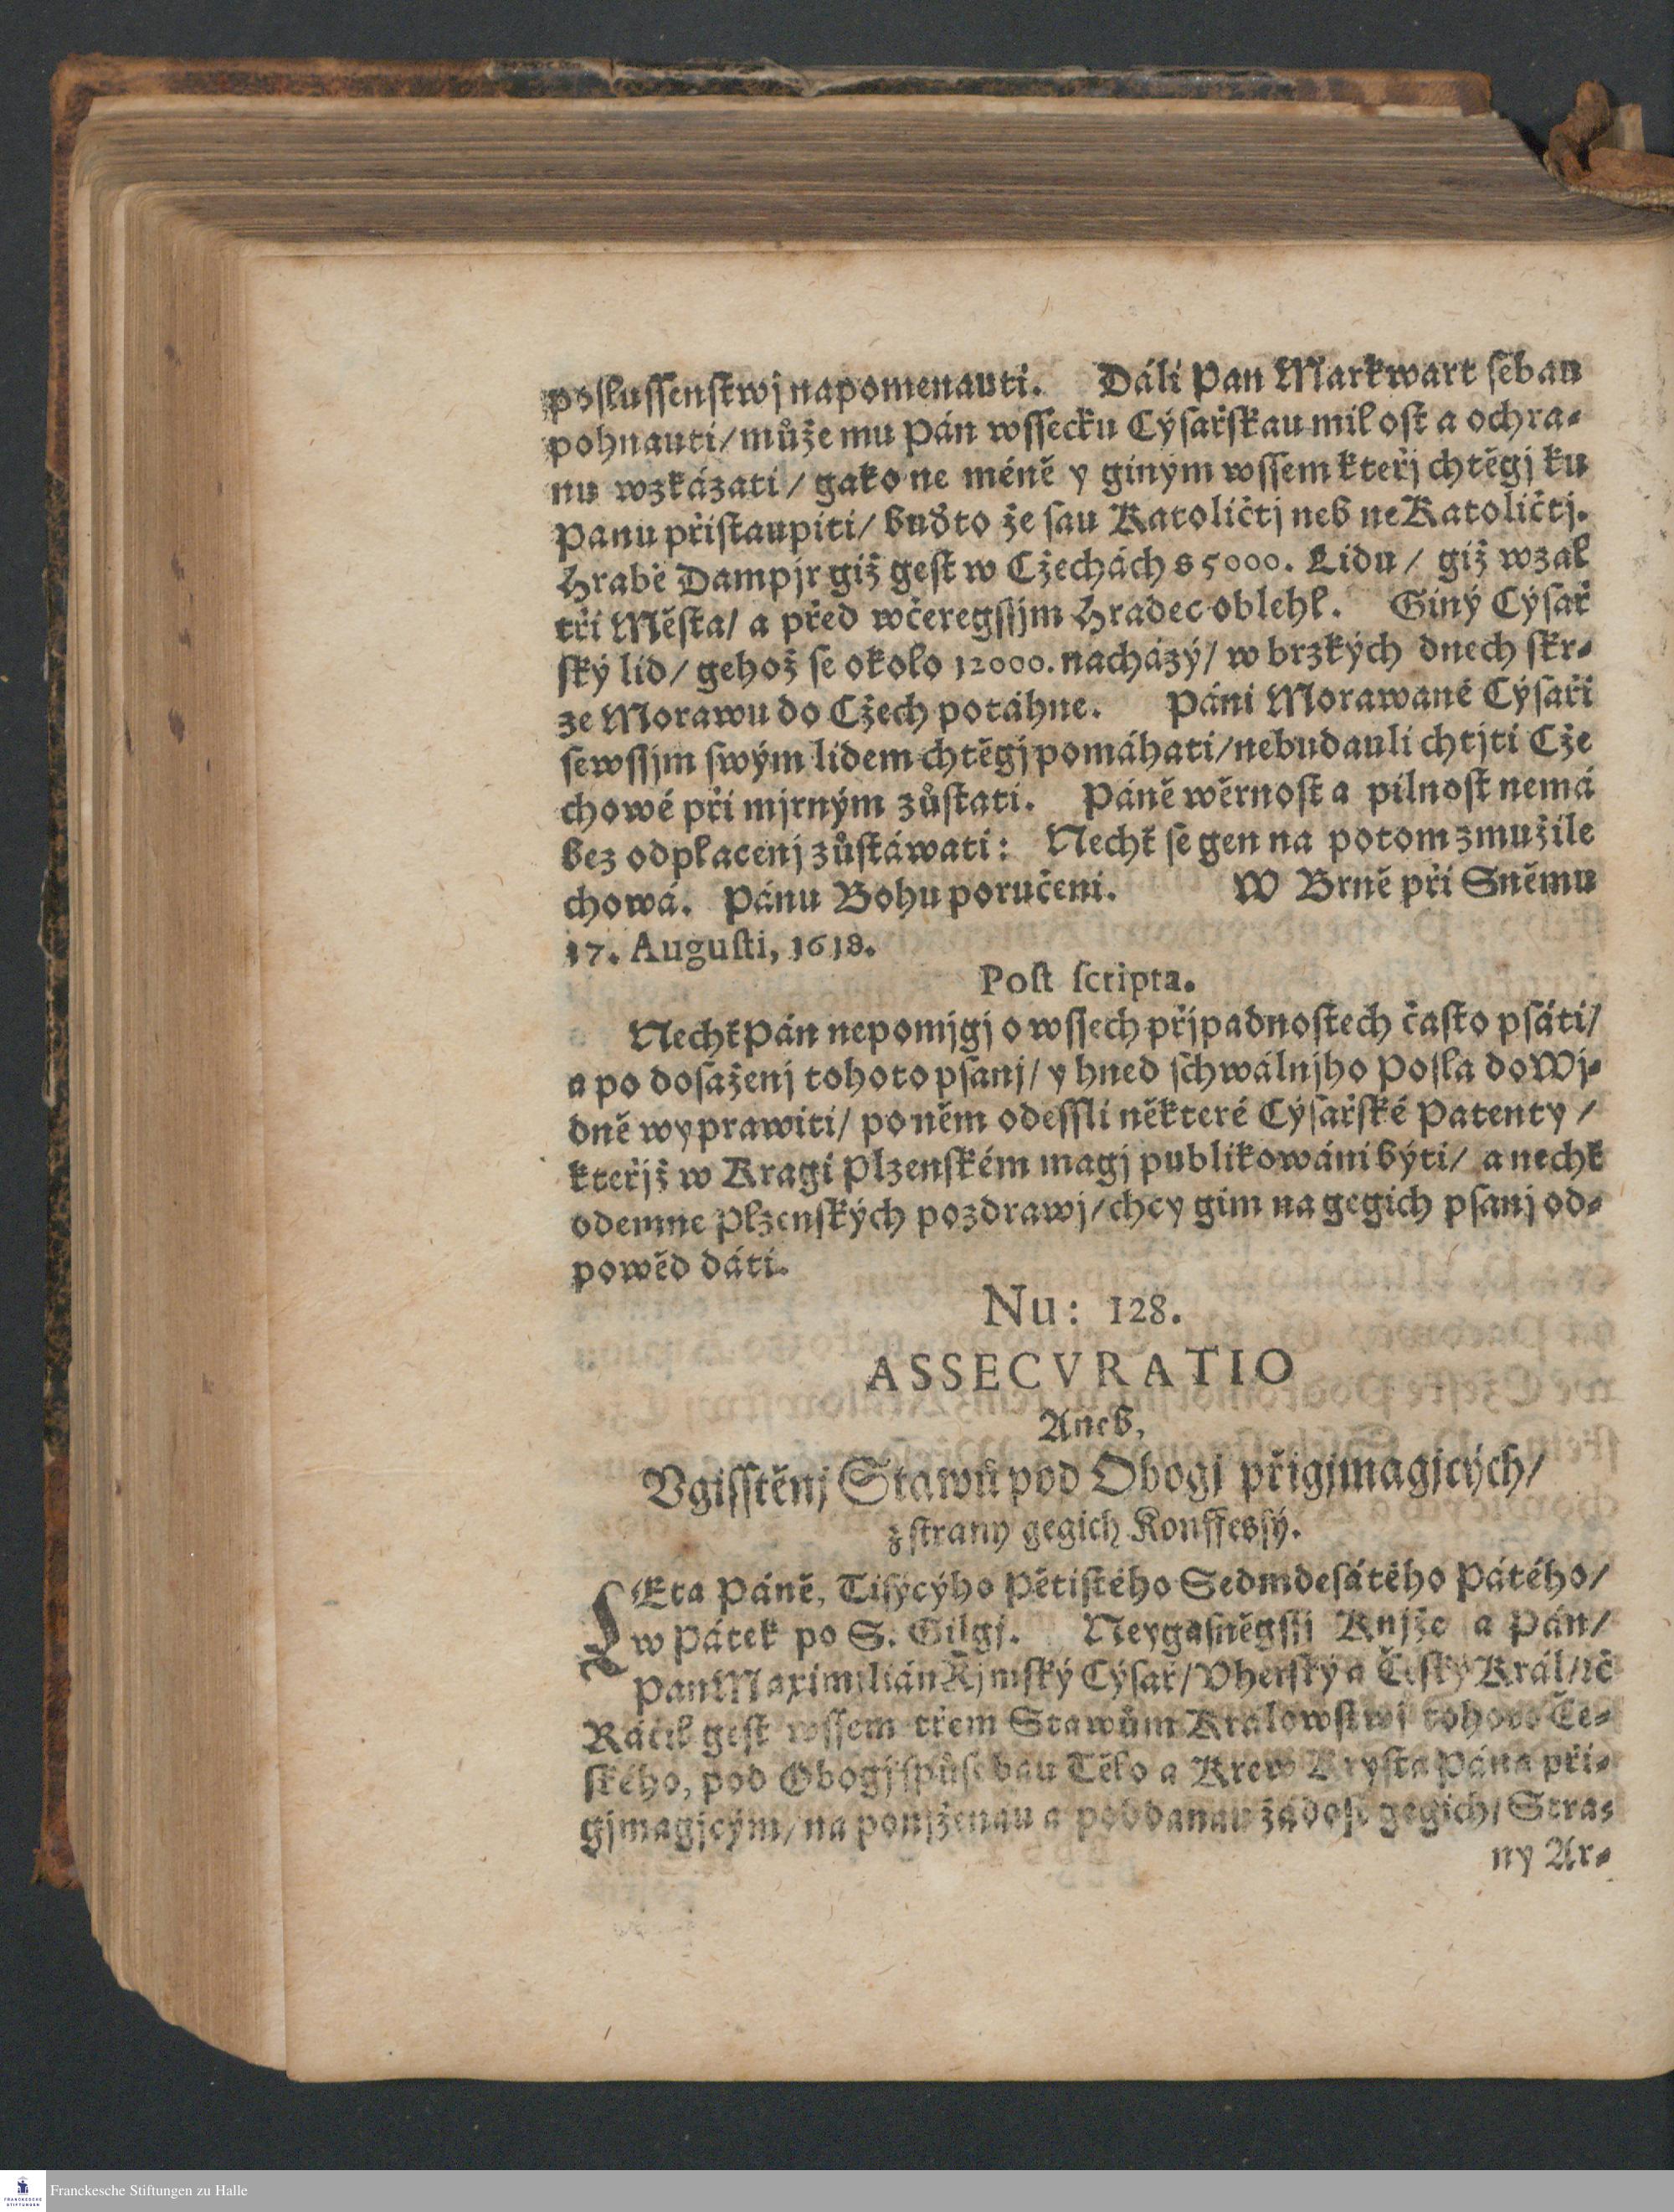 poslussenstwj napomenauti. Dáli Pan Markwart sebau
pohnauti/ může mu Pán wssecku Cýsařskau milost a ochra-
nu wzkázati/ gako ne méně y giným wssem kteřj chtěgj ku
Panu přistaupiti/ buďto že sau Katoličtj neb neKatoličtj.
Hrabě Dampjr giž gest w Cžechách s 5000. Lidu/ giž wzal
tři Města/ a před wčeregssjm Hradec oblehl. Giný Cýsař
ský lid/ gehož se okolo 12000. nacházý/ w brzkých dnech skr-
ze Morawu do Cžech potáhne. Páni Morawané Cýsaři
sewssjm swým lidem chtěgj pomáhati/ nebudauli chtjti Cže
chowé při mjrným zůstati. Páně wěrnost a pilnost nemá
bez odplacenj zůstáwati: Necht se gen na potom zmužile
chowá. Pánu Bohu poručeni. W Brně při Sněmu
17. Augusti, 1618.
Post scripta.
Necht Pán nepomjgj o wssech přjpadnostech často psáti/
a po dosaženj tohoto psanj/ y hned schwálnjho Posla do Wj-
dně wyprawiti/ po něm odessli některé Cýsařské Patenty/
kteřjž w Kragi Plzenském magj publikowáni býti/ a necht
odemne Plzenských pozdrawj/ chcy gim na gegich psanj od-
powěd dáti.
Nu: 128.
ASSECVRATIO
Aneb,
Vgisstěnj Stawů pod Obogj přigjmagjcých/
z strany gegich Konffessý.
LEta Páně, Tisýcýho Pětistého Sedmdesátého Pátého/
w Pátek po S. Gilgj. Neygasněgssj Knjže a Pán/
Pan Maximilián Ržjmský Cýsař/ Vherský a Český Král/ ꝛč
Ráčil gest wssem třem Stawům Kralowstwj tohoto Če-
ského, pod Obogj spůsobau Tělo a Krew Krysta Pána při-
gjmagjcým/ na ponjženau a poddanau žádost gegich/ Stra-
ny Ar-
Franckesche Stiftungen zu Halle